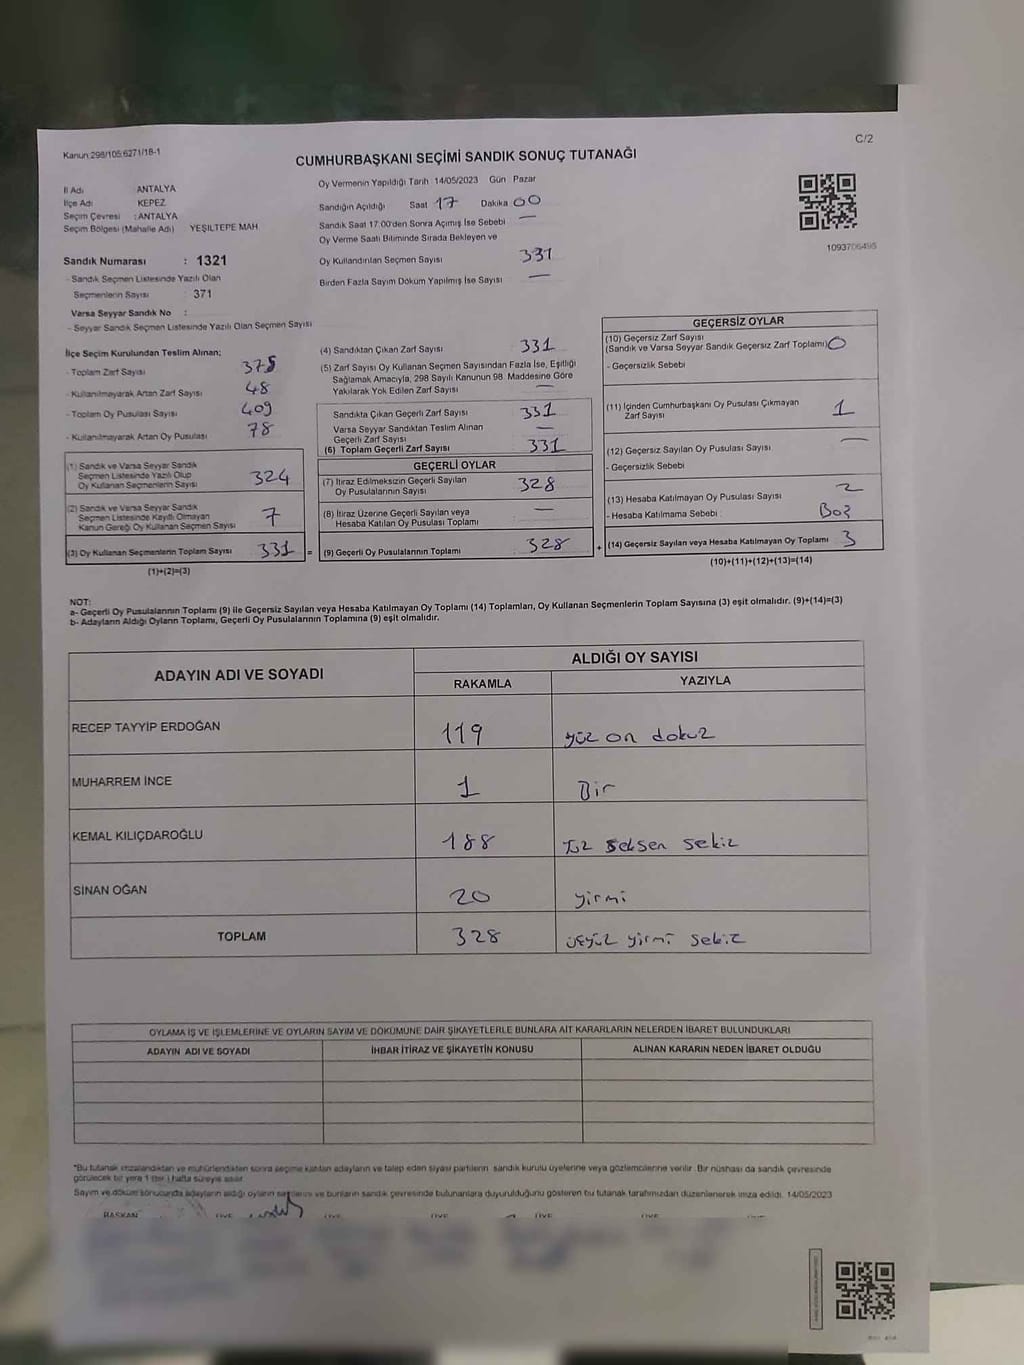 C/2
Kanun:298/105:6271/18-1
CUMHURBAŞKANI SEÇİMİ SANDIK SONUÇ TUTANAĞI
İl Adı ANTALYA
İlçe Adı KEPEZ
Seçim Çevresi : ANTALYA
Seçim Bölgesi (Mahalle Adı) YEŞİLTEPE MAH
Oy Vermenin Yapıldığı Tarih 14/05/2023 Gün Pazar
Sandığın Açıldığı Saat 17 Dakika 00
Sandık Saat 17:00'den Sonra Açımış İse Sebebi —
Oy Verme Saati Bitiminde Sırada Bekleyen ve
Oy Kullandırılan Seçmen Sayısı 331
Birden Fazla Sayım Döküm Yapılmış İse Sayısı —
1093706495
Sandık Numarası : 1321
- Sandık Seçmen Listesinde Yazılı Olan
Seçmenlerin Sayısı : 371
Varsa Seyyar Sandık No :
- Seyyar Sandık Seçmen Listesinde Yazılı Olan Seçmen Sayısı
İlçe Seçim Kurulundan Teslim Alınan;
- Toplam Zarf Sayısı
- Kullanılmayarak Artan Zarf Sayısı 48
- Toplam Oy Pusulası Sayısı 409
- Kullanılmayarak Artan Oy Pusulası 78
(1) Sandık ve Varsa Seyyar Sandık
Seçmen Listesinde Yazılı Olup
Oy Kullanan Seçmenlerin Sayısı 324
(2) Sandık ve Varsa Seyyar Sandık
Seçmen Listesinde Kayıtlı Olmayan
Kanun Gereği Oy Kullanan Seçmen Sayısı 7
(3) Oy Kullanan Seçmenlerin Toplam Sayısı 331 =
(1)+(2)=(3)
(4) Sandıktan Çıkan Zarf Sayısı 331
(5) Zarf Sayısı Oy Kullanan Seçmen Sayısından Fazla İse, Eşitliği
Sağlamak Amacıyla, 298 Sayılı Kanunun 98. Maddesine Göre
Yakılarak Yok Edilen Zarf Sayısı —
Sandıkta Çıkan Geçerli Zarf Sayısı 331
Varsa Seyyar Sandıktan Teslim Alınan
Geçerli Zarf Sayısı —
(6) Toplam Geçerli Zarf Sayısı 331
GEÇERLİ OYLAR
(7) İtiraz Edilmeksizin Geçerli Sayılan
Oy Pusulalarının Sayısı 328
(8) İtiraz Üzerine Geçerli Sayılan veya
Hesaba Katılan Oy Pusulası Toplamı —
(9) Geçerli Oy Pusulalarının Toplamı 328 +
GEÇERSİZ OYLAR
(10) Geçersiz Zarf Sayısı
(Sandık ve Varsa Seyyar Sandık Geçersiz Zarf Toplamı) 0
- Geçersizlik Sebebi
(11) İçinden Cumhurbaşkanı Oy Pusulası Çıkmayan
Zarf Sayısı 1
(12) Geçersiz Sayılan Oy Pusulası Sayısı —
- Geçersizlik Sebebi
(13) Hesaba Katılmayan Oy Pusulası Sayısı 2
- Hesaba Katılmama Sebebi : Boş
(14) Geçersiz Sayılan veya Hesaba Katılmayan Oy Toplamı 3
(10)+(11)+(12)+(13)=(14)
NOT:
a- Geçerli Oy Pusulalarının Toplamı (9) ile Geçersiz Sayılan veya Hesaba Katılmayan Oy Toplamı (14) Toplamları, Oy Kullanan Seçmenlerin Toplam Sayısına (3) eşit olmalıdır. (9)+(14)=(3)
b- Adayların Aldığı Oyların Toplamı, Geçerli Oy Pusulalarının Toplamına (9) eşit olmalıdır.
ADAYIN ADI VE SOYADI ALDIĞI OY SAYISI
RAKAMLA YAZIYLA
RECEP TAYYİP ERDOĞAN 119 yüz on dokuz
MUHARREM İNCE 1 Bir
KEMAL KILIÇDAROĞLU 188 Yüz seksen sekiz
SİNAN OĞAN 20 yirmi
TOPLAM 328 üçyüz yirmi sekiz
OYLAMA İŞ VE İŞLEMLERİNE VE OYLARIN SAYIM VE DÖKÜMÜNE DAİR ŞİKAYETLERLE BUNLARA AİT KARARLARIN NELERDEN İBARET BULUNDUKLARI
ADAYIN ADI VE SOYADI İHBAR İTİRAZ VE ŞİKAYETİN KONUSU ALINAN KARARIN NEDEN İBARET OLDUĞU
*Bu tutanak imzalandıktan ve mühürlendikten sonra seçime katılan adayların ve talep eden siyasi partilerin sandık kurulu üyelerine veya gözlemcilerine verilir. Bir nüshası da sandık çevresinde
görülecek bir yere 1 (bir) hafta süreyle asılır.
Sayım ve döküm sonucunda adayların aldığı oyların sayılarını ve bunların sandık çevresinde bulunanlara duyurulduğunu gösteren bu tutanak tarafımızdan düzenlenerek imza edildi. 14/05/2023
BAŞKAN ÜYE ÜYE ÜYE ÜYE ÜYE